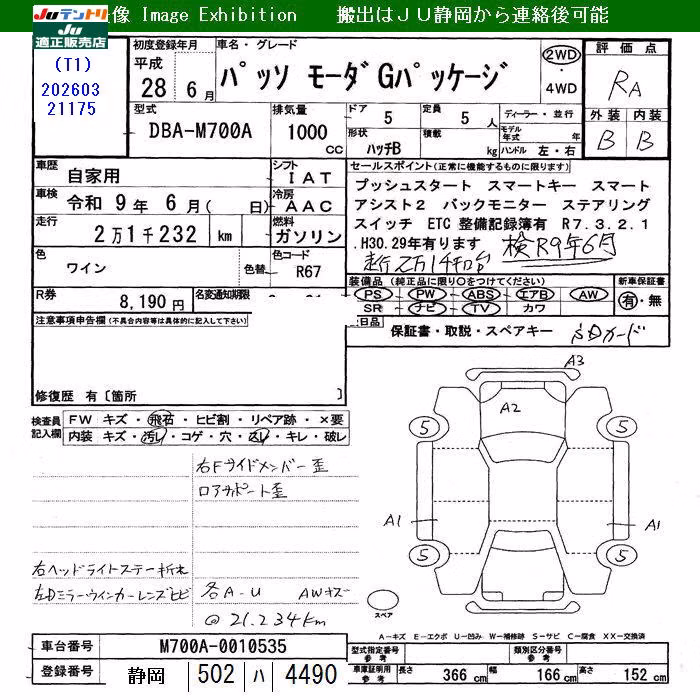 JUテントリ 像 Image Exhibition 搬出はJU静岡から連絡後可能
JU
適正販売店
(T1)
202603
21175
初度登録年月
平成
28 6月
車名・グレード
パッソ モーダGパッケージ
2WD
4WD
評価点
RA
外装 内装
B B
型式
DBA-M700A
排気量
1000
cc
ドア
5
定員
5 人
ディーラー・並行
形状
ハッチB
積載
kg
モデル年式 年
ハンドル 左・右
車歴
自家用
シフト
IAT
車検
令和 9年 6月( 日)
冷房
AAC
走行
2万1千232 km
燃料
ガソリン
色
ワイン
色替
色コード
R67
R券
8,190円
名変通知期限
セールスポイント(正常に機能するものに限ります)
プッシュスタート スマートキー スマート
アシスト2 バックモニター ステアリング
スイッチ ETC 整備記録簿有 R7.3.2.1
.H30.29年有ります 検R9年6月
走行2万1千口台
装備品(純正品に限り○をつけてください)
PS・PW・ABS・エアB AW
SR ナビ・TV カワ
新車保証書
有・無
保証書・取説・スペアキー SDカード
注意事項申告欄(不具合内容等は具体的に記入して下さい)
修復歴 有〔箇所 〕
検査員記入欄
FW キズ・飛石・ヒビ割・リペア跡・×要
内装 キズ・汚レ・コゲ・穴・スレ・キレ・破レ
右Fサイドメンバー歪
ロアサポート歪
右ヘッドライトステー折れ
左Dミラーウインカーレンズヒビ
各A-U AWキズ
@21.234km
A3
A2
5 5
A1 A1
5 5
スペア
A-キズ E-エクボ U-凹み W-補修跡 S-サビ C-腐食 XX-交換済
車台番号 M700A-0010535
登録番号 静岡 502 ハ 4490
型式指定番号 参考
類別区分番号 参考
車庫証明用 参考
長さ 366 cm 幅 166 cm 高さ 152 cm